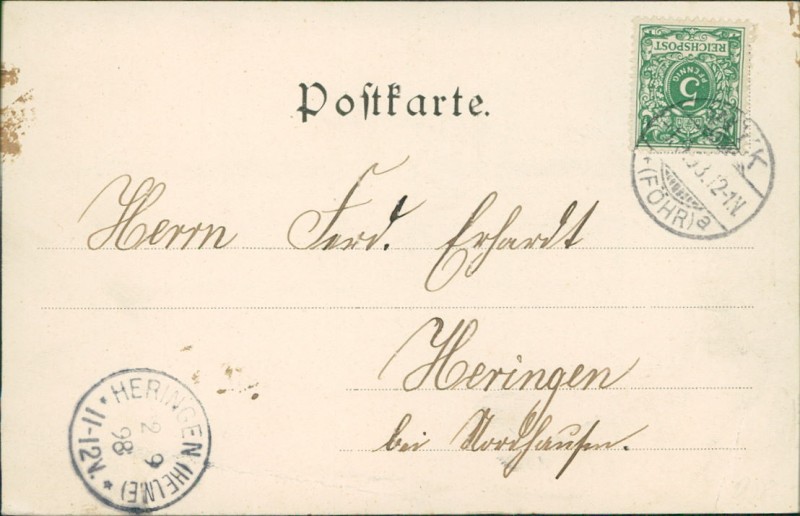 Postkarte.
REICHSPOST
5
PFENNIG
(FÖHR)a
12-1N.
Herrn Ferd. Erhardt
Heringen
bei Nordhausen.
HERINGEN (HELME)
2 9
98
11-12N.